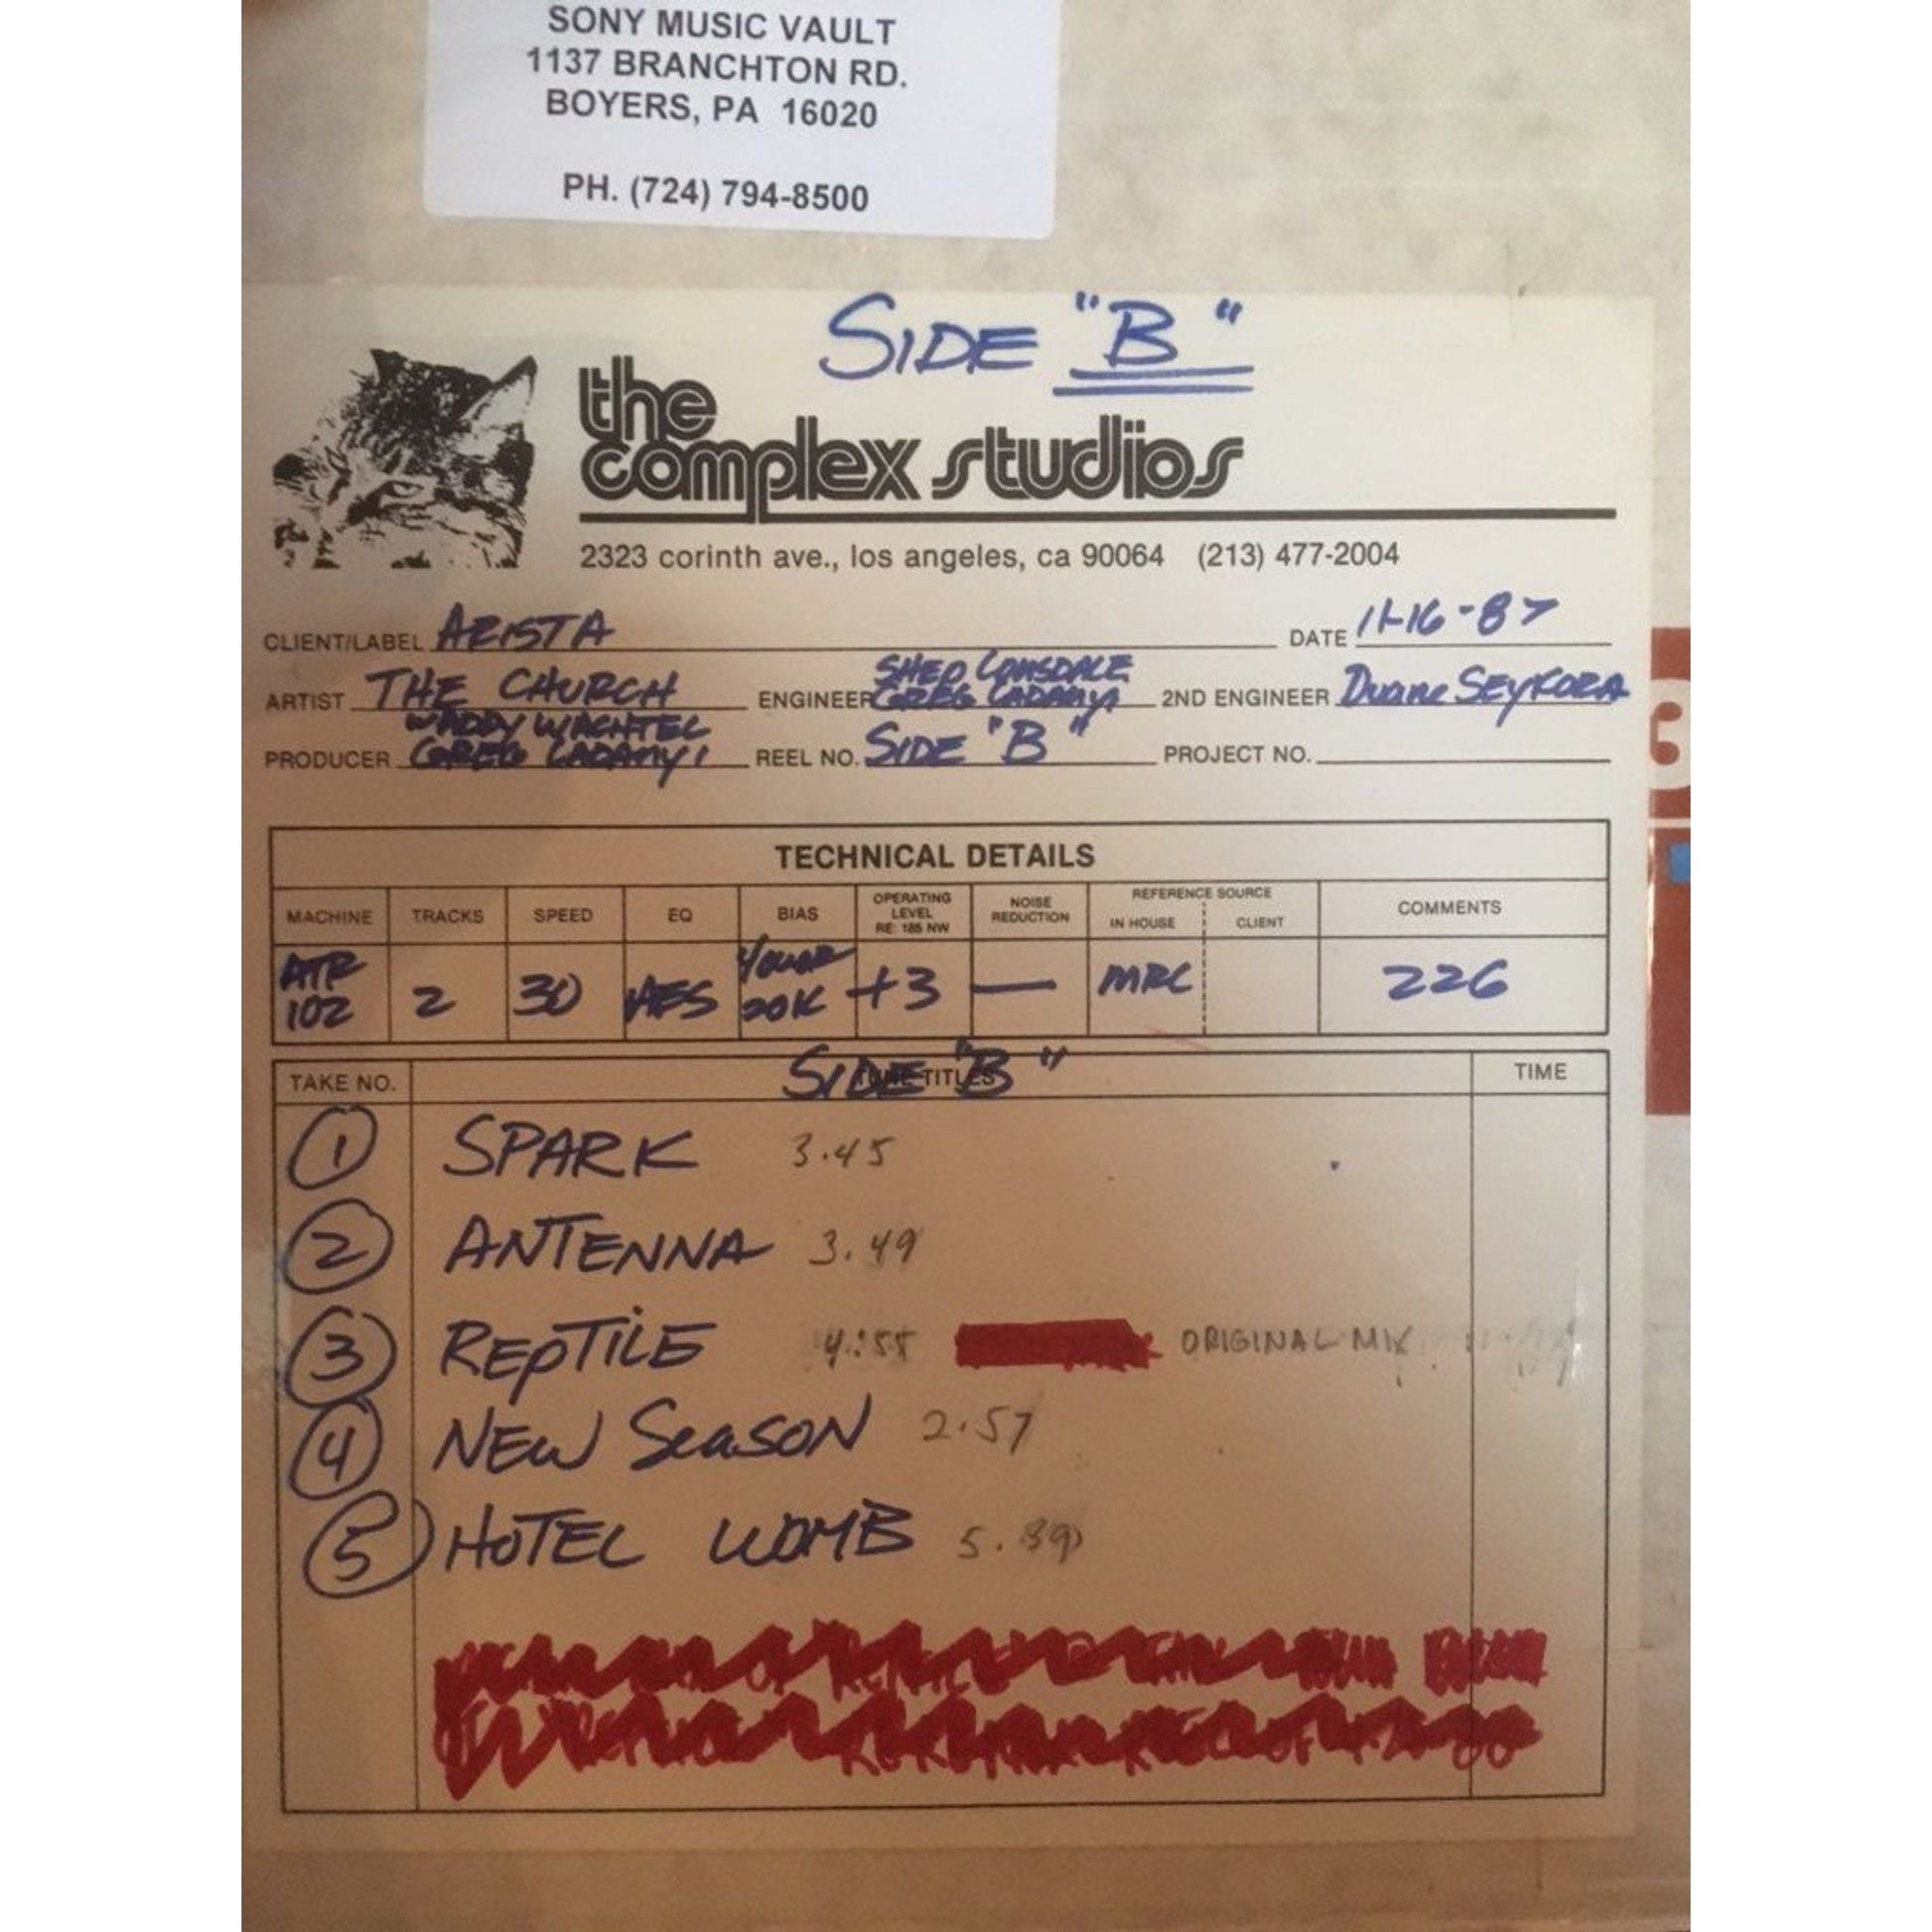 SONY MUSIC VAULT
1137 BRANCHTON RD.
BOYERS, PA 16020
PH. (724) 794-8500
SIDE "B"
the
complex studios
2323 corinth ave., los angeles, ca 90064 (213) 477-2004
CLIENT/LABEL ARISTA DATE 11-16-87
ARTIST THE CHURCH ENGINEER SHEP LONSDALE GREG LADANYI 2ND ENGINEER Duane SEYKORA
PRODUCER WADDY WACHTEL GREG LADANYI REEL NO. SIDE "B" PROJECT NO.
TECHNICAL DETAILS
MACHINE TRACKS SPEED EQ BIAS OPERATING LEVEL RE: 185 NW NOISE REDUCTION REFERENCE SOURCE IN HOUSE CLIENT COMMENTS
ATR 102 2 30 AES 20K +3 — MRL 226
TAKE NO. TUNE TITLES SIDE "B" TIME
1 SPARK 3.45
2 ANTENNA 3.49
3 REPTILE 4:55 ORIGINAL MIX
4 NEW SEASON 2.57
5 HOTEL WOMB 5.39